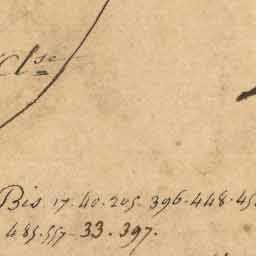 Clse
Bis 17. 40. 205. 396. 448. 45
485. 557. 33. 397.